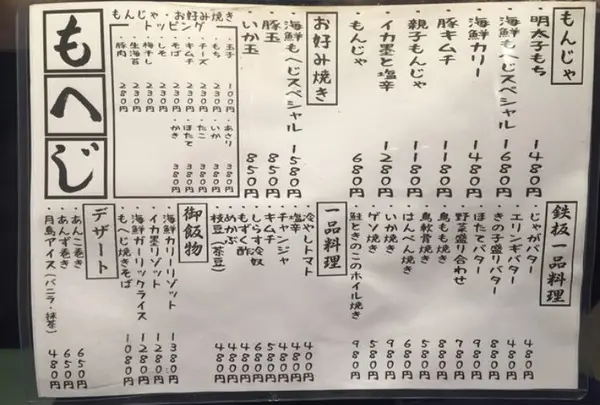 もんじゃ
・明太子もち 1480円
・海鮮もへじスペシャル 1680円
・海鮮カリー 1480円
・豚キムチ 1180円
・親子もんじゃ 1180円
・イカ墨と塩辛 1280円
・もんじゃ 680円
お好み焼き
・海鮮もへじスペシャル 1580円
・豚玉 850円
・いか玉 850円
もんじゃ・お好み焼き
トッピング
・玉子 100円
・もち 230円
・チーズ 230円
・キムチ 230円
・そば 230円
・生海苔 230円
・豚肉 280円
・あさり 380円
・いか 380円
・たこ 380円
・ほたて 380円
・かき 380円
もへじ
鉄板一品料理
・じゃがバター 480円
・エリンギバター 480円
・きの子盛りバター 880円
・ほたてバター 780円
・野菜盛り合わせ 980円
・鳥もも焼き 880円
・鳥軟骨焼き 580円
・はんぺん焼き 680円
・いか焼き 980円
・ゲソ焼き 580円
・鮭ときのこのホイル焼き 980円
一品料理
・冷やしトマト 400円
・塩辛 480円
・チャンジャ 480円
・キムチ 580円
・しらす冷奴 680円
・もずく酢 480円
・めかぶ 480円
・枝豆(茶豆) 480円
御飯物
・海鮮カリーリゾット 1380円
・イカ墨リゾット 1280円
・海鮮ガーリックライス 1280円
・もへじ焼きそば 1080円
デザート
・あんこ巻き 650円
・あんず巻き 650円
・月島アイス(バニラ・抹茶) 480円